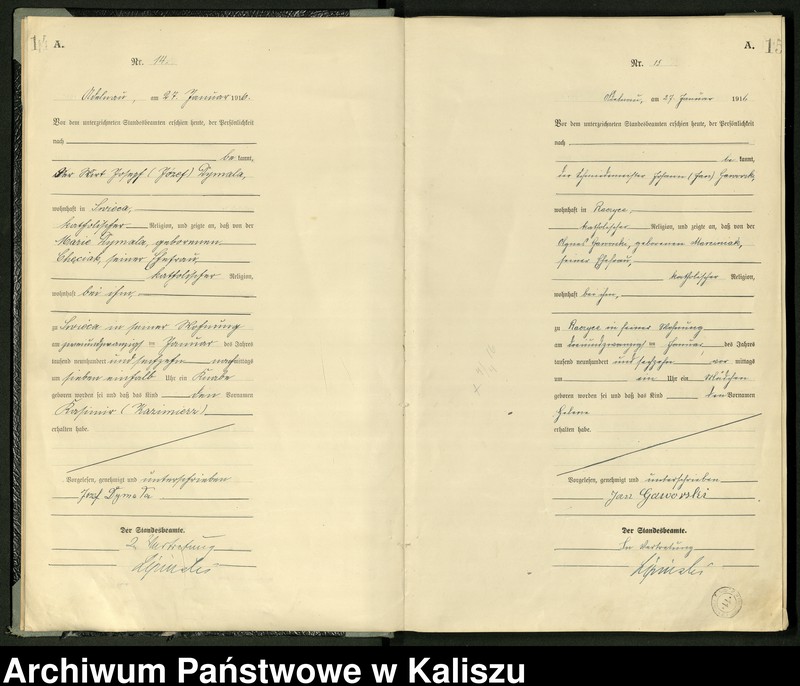 14
A.
Nr. 14.
Adelnau, am 27. Januar 1916.
Vor dem unterzeichneten Standesbeamten erschien heute, der Persönlichkeit
nach
be kannt,
der Wirt Joseph (Józef) Dymala,
wohnhaft in
katholischer Religion, und zeigte an, daß von der
Marie Dymala, geborenen
seiner Ehefrau,
katholischer Religion,
wohnhaft bei ihm,
zu in seiner Wohnung
am Januar des Jahres
tausend neunhundert und sechzehn nachmittags
um sieben einhalb Uhr ein Knabe
geboren worden sei und daß das Kind den Vornamen
Kasimir (Kazimierz)
erhalten habe.
Vorgelesen, genehmigt und unterschrieben
Józef Dymała
Der Standesbeamte.
Vertretung
15
A.
Nr. 15
Adelnau, am 27. Januar 1916
Vor dem unterzeichneten Standesbeamten erschien heute, der Persönlichkeit
nach
be kannt,
der Schmiedemeister Johann (Jan)
wohnhaft in
katholischer Religion, und zeigte an, daß von der
Agnes geborenen
seiner Ehefrau,
katholischer Religion,
wohnhaft bei ihm,
zu in seiner Wohnung
am Januar des Jahres
tausend neunhundert und sechzehn vor mittags
um ein Uhr ein Mädchen
geboren worden sei und daß das Kind den Vornamen
Helene
erhalten habe.
Vorgelesen, genehmigt und unterschrieben
Jan Gaworski
Der Standesbeamte.
In Vertretung
Archiwum Państwowe w Kaliszu